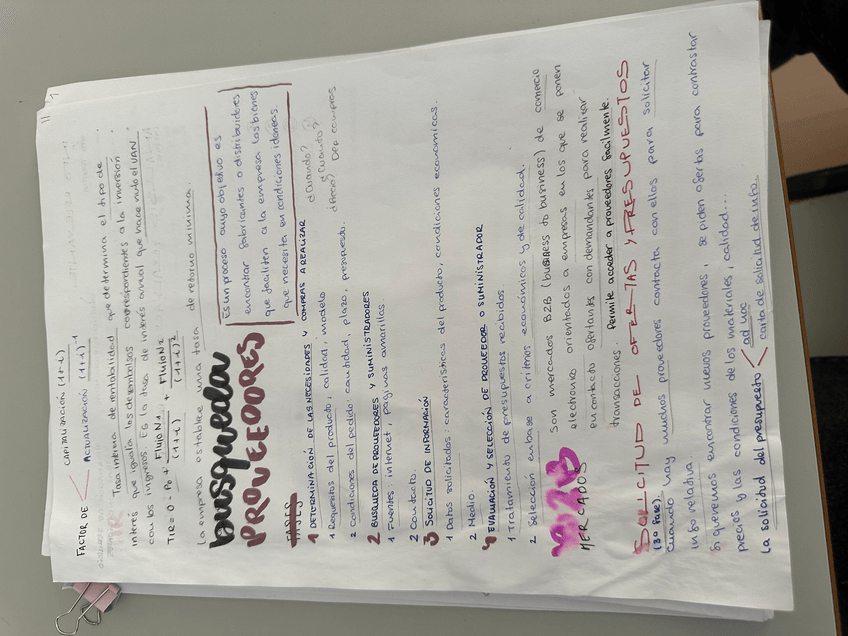 FACTOR DE
CAPITALIZACIÓN (1+i)
ACTUALIZACIÓN (1+i)⁻¹
TIR Tasa interna de rentabilidad que determina el tipo de
interés que iguala los desembolsos correspondientes a la inversión
con los ingresos. Es la tasa de interés anual que hace nulo el VAN.
TIR = 0 - P0 + FlujoN1 / (1+i) + FlujoN2 / (1+i)²
La empresa establece una tasa de retorno mínima.
busqueda
PROVEEDORES
Es un proceso cuyo objetivo es
encontrar fabricantes o distribuidores
que faciliten a la empresa los bienes
que necesita en condiciones idoneas.
FASES
1 DETERMINACIÓN DE LAS NECESIDADES Y COMPRAS A REALIZAR
1 Requisitos del producto, calidad, modelo
2 Condiciones del pedido: cantidad, plazo, presupuesto.
¿Cuando?
¿Cuanto?
Dep compras
2 BUSQUEDA DE PROVEEDORES Y SUMINISTRADORES
1 Fuentes: internet, páginas amarillas
2 Contacto.
3 SOLICITUD DE INFORMACIÓN
1 Datos solicitados: características del producto, condiciones economicas.
2 Medio.
4 EVALUACIÓN Y SELECCIÓN DE PROVEEDOR O SUMINISTRADOR
1 Tratamiento de presupuestos recibidos.
2 Selección en base a criterios económicos y de calidad.
B2B
MERCADOS
Son mercados B2B (business to business) de comercio
electronico orientados a empresas en los que se ponen
en contacto ofertantes con demandantes para realizar
transacciones. Permite acceder a proveedores facilmente.
SOLICITUD DE OFERTAS Y PRESUPUESTOS
(3º Fase).
Cuando hay muchos proveedores contacta con ellos para solicitar
info relativa.
Si queremos encontrar nuevos proveedores, se piden ofertas para contrastar
precios y las condiciones de los materiales, calidad...
La solicitud del presupuesto
ad hoc
carta de solicitud de info.